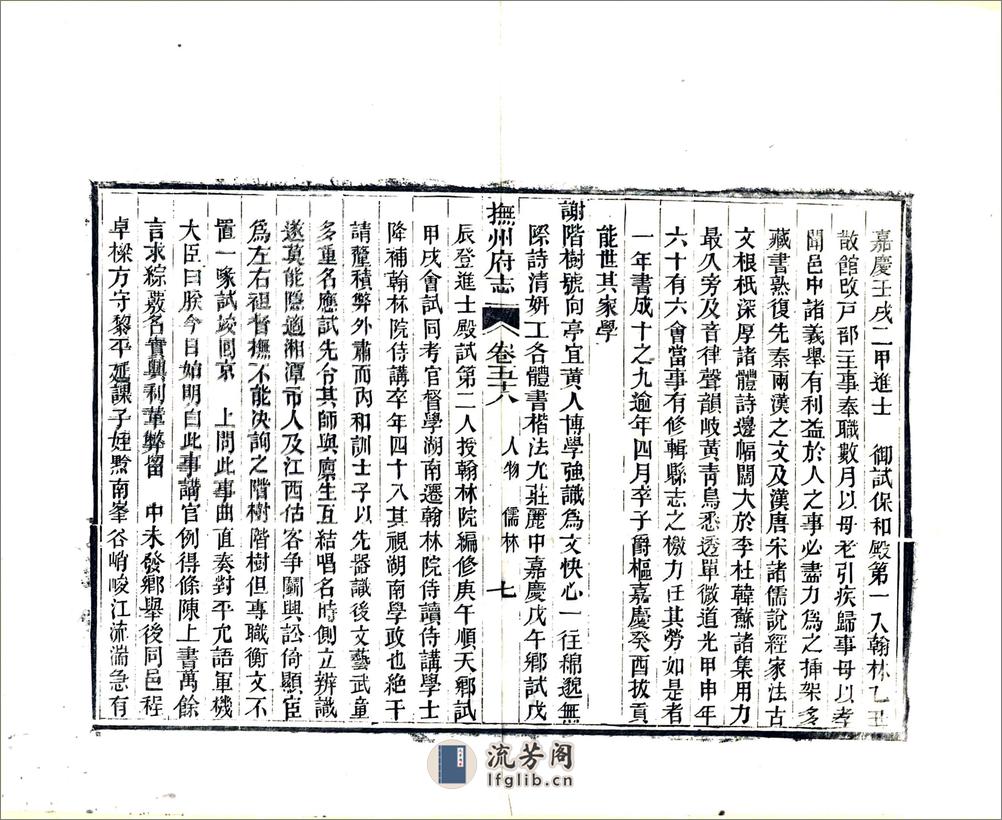 嘉慶壬戌二甲進士　御試保和殿第一入翰林乙丑
散館改戸部主事奉職數月以母老引疾歸事母以孝
聞邑中諸義舉有利益於人之事必盡力為之揷架多
藏書熟復先秦兩漢之文及漢唐宋諸儒說經家法古
文根柢深厚諸體詩邊幅闊大於李杜韓蘇諸集用力
最久旁及音律聲韻岐黃靑烏悉透單微道光甲申年
六十有六會當事有修輯縣志之檄力任其勞如是者
一年書成十之九逾年四月卒子爵樞嘉慶癸酉拔貢
能世其家學
謝階樹號向亭宜黃人博學強識為文快心一往綿邈無
際詩清妍工各體書楷法尤莊麗中嘉慶戊午鄉試戊
撫州府志　卷五十六　人物　儒林　七
辰登進士殿試第二人授翰林院編修庚午順天鄉試
甲戌會試同考官督學湖南遷翰林院侍讀侍講學士
降補翰林院侍講卒年四十八其視湖南學政也絶干
請釐積弊外肅而內和訓士子以先器識後文藝武童
多重名應試先令其師與廩生互結唱名時側立辨識
遂莫能隱適湘潭市人及江西估客争鬭興訟倚顯宦
為左右袒督撫不能决詢之階樹階樹但專職衡文不
置一喙試竣囘京　上問此事曲直奏對平允語軍機
大臣曰朕今日始明白此事講官例得條陳上書萬餘
言求綜覈名實興利革弊留　中未發鄉舉後同邑程
卓樑方守黎平延課子姪黔南峯谷峭峻江流湍急有
流芳阁
lfglib.cn